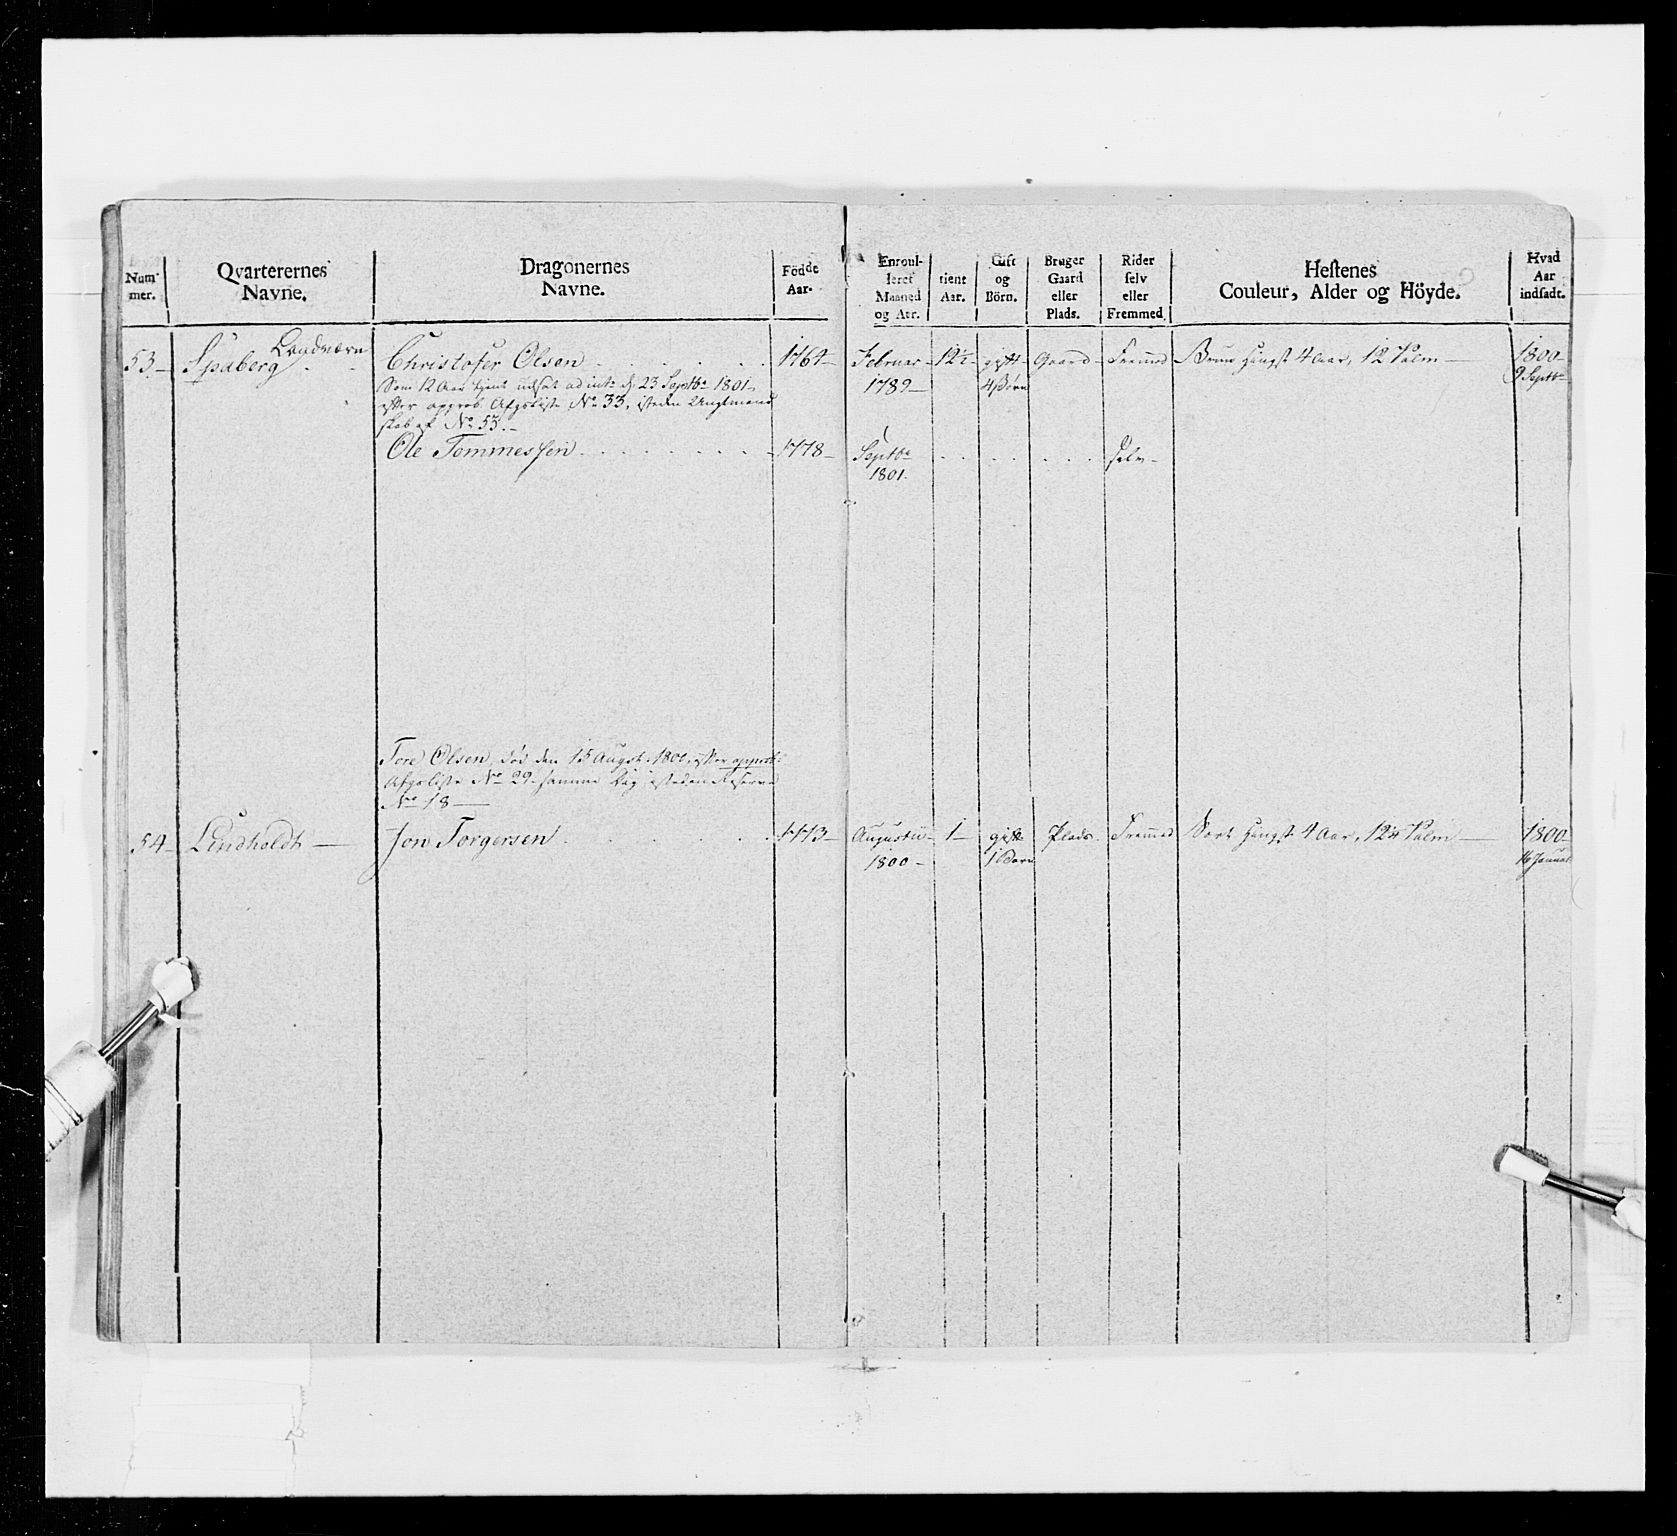 Num-
mer.
Qvarterernes
Navne.
Dragonernes
Navne.
Födde
Aar.
Enroul-
leret
Maaned
og Aar.
tient
Aar.
Gift
og
Börn.
Bruger
Gaard
eller
Plads.
Rider
selv
eller
Fremmed.
Hestenes
Couleur, Alder og Höyde.
Hvad
Aar
indsadt.
Landværn
53 Spaberg Christofer Olsen 1764 Februar 12½ gift Gaard Fremed Brun Hingst 4 Aar, 12 Palm 1800
1789 4 Börn 9 Septbr
Som 12 Aar tjent udsat ad int: d: 23 Septbr 1801,
efter approb. Afgsliste No 33, isteden
skab af No 53.
Ole Tommessen 1778 Septbr selv
1801.
Tore Olsen, död den 15 August 1800, efter approb:
Afgsliste No 29 samme Dag isteden Reserve
No 18
54 Lindholdt Jon Torgersen 1773 Augustii 1 gift Plads Fremed Sort Hingst 4 Aar, 12¼ Palm 1800
1800 1 Barn 16 Januar